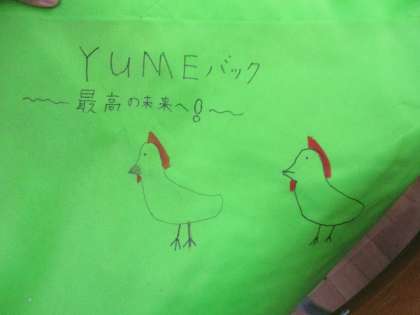 YUMEバック
〜最高の未来へ!〜